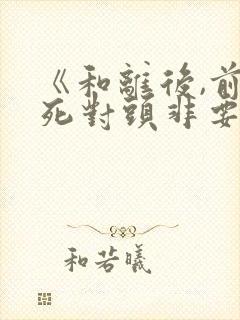 《和離後,前
死對頭非要
和若曦